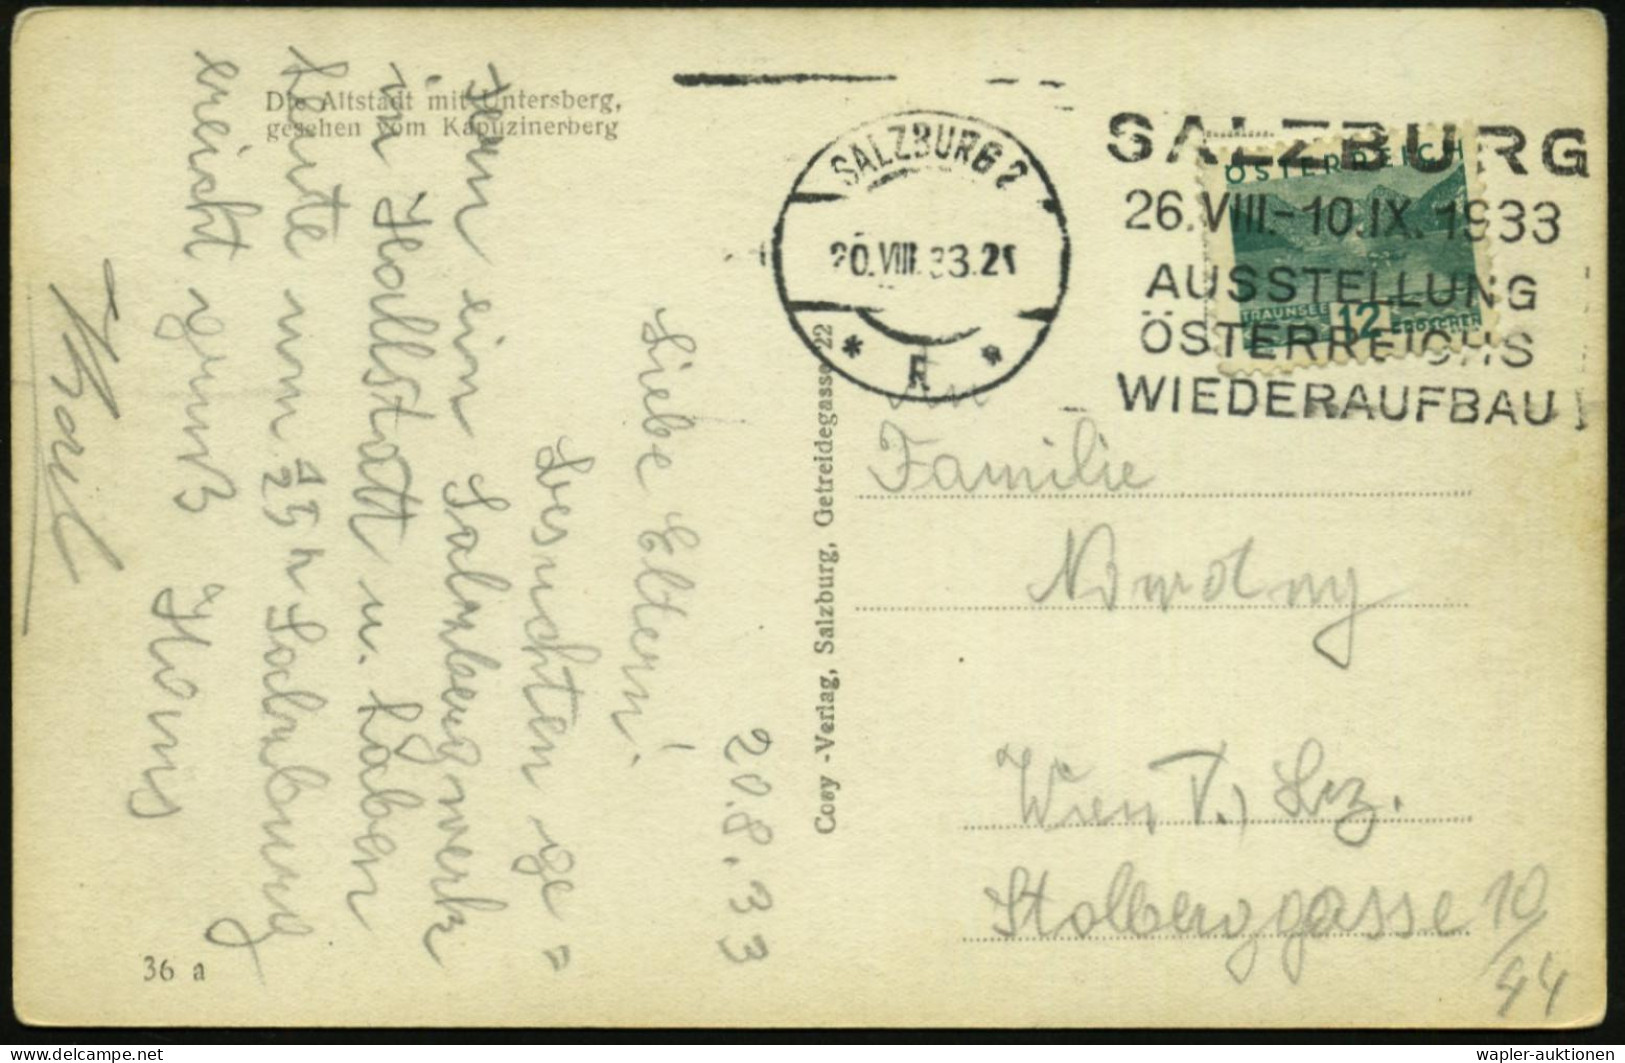 Die Altstadt mit Untersberg,
gesehen vom Kapuzinerberg
20.8.33
Liebe Eltern!
Besuchten ge=
stern ein Salzbergwerk
in Hallstatt u. haben
heute um 15h Salzburg
erreicht gruß Hans
Karl
36 a
Cosy-Verlag, Salzburg, Getreidegasse 22
SALZBURG 2
20.VIII.33.21
* R *
SALZBURG
26.VIII.-10.IX.1933
AUSSTELLUNG
ÖSTERREICHS
WIEDERAUFBAU
ÖSTERREICH
TRAUNSEE 12 GROSCHEN
An
Familie
Wien V., Bz.
Stolberggasse 10/44
wapler-auktionen